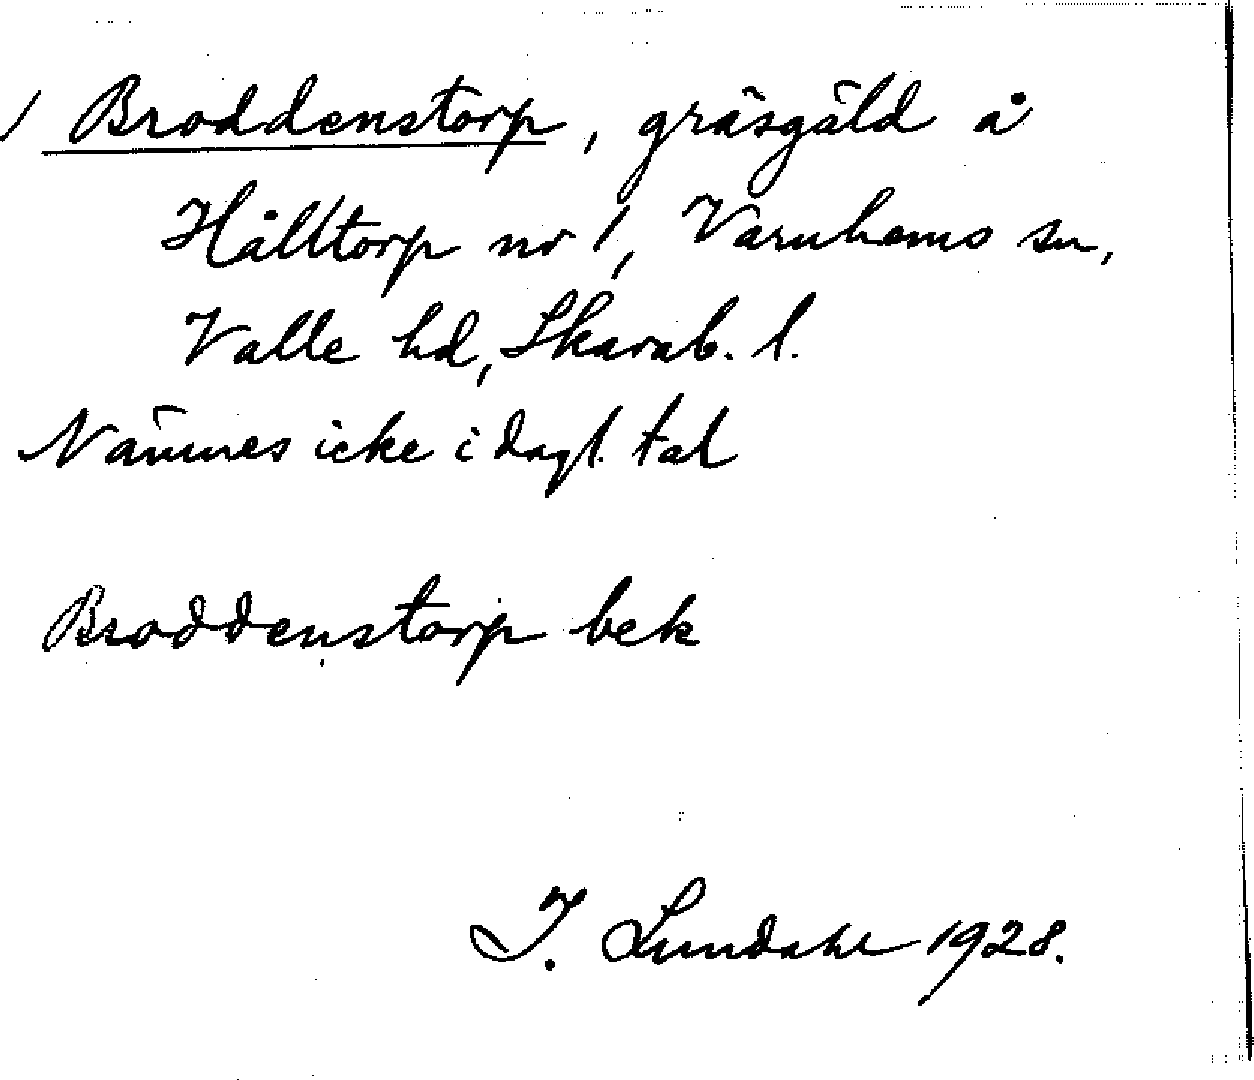 / Broddenstorp, gräsgäld å
Hålltorp nr 1, Varnhems sn,
Valle hd, Skarab. l.
Nämnes icke i dagl. tal
Broddenstorp bek
I. Lundahl 1928.